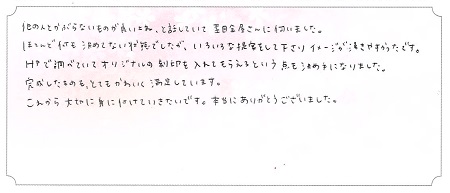 他の人とかぶらないものが良いよね、と話していて 杢目金屋さんに伺いました。
ほとんど何も決めてない状態でしたが、いろいろな提案をして下さり イメージが湧きやすかったです。
HPで調べていてオリジナルの刻印を入れてもらえるという点も決め手になりました。
完成したものも、とてもかわいく満足しています。
これから大切に身に付けていきたいです。本当にありがとうございました。